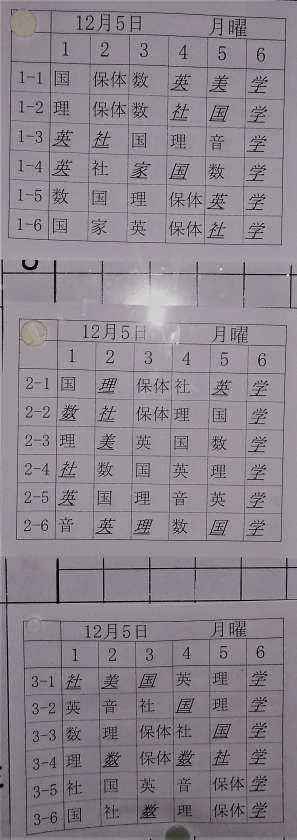 12月5日 月曜
1 2 3 4 5 6
1-1 国 保体 数 英 美 学
1-2 理 保体 数 社 国 学
1-3 英 社 国 理 音 学
1-4 英 社 家 国 数 学
1-5 数 国 理 保体 英 学
1-6 国 家 英 保体 社 学
12月5日 月曜
1 2 3 4 5 6
2-1 国 理 保体 社 英 学
2-2 数 社 保体 理 国 学
2-3 理 美 英 国 数 学
2-4 社 数 国 英 理 学
2-5 英 国 理 音 英 学
2-6 音 英 理 数 国 学
12月5日 月曜
1 2 3 4 5 6
3-1 社 美 国 英 理 学
3-2 英 音 社 国 理 学
3-3 数 理 保体 社 国 学
3-4 理 数 保体 数 社 学
3-5 社 国 英 音 保体 学
3-6 国 社 数 理 保体 学